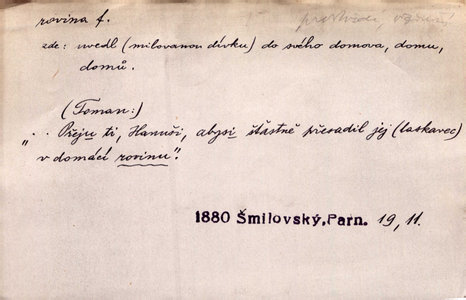 rovina f.
zde: uvedl (milovanou dívku) do svého domova, domu,
domů.
(Toman:)
„.. Přeju ti, Hanuši, abysi štăstně přesadil jej (laskavec)
v domácí rovinu".
1880 Šmilovský, Parn. 19, 11.